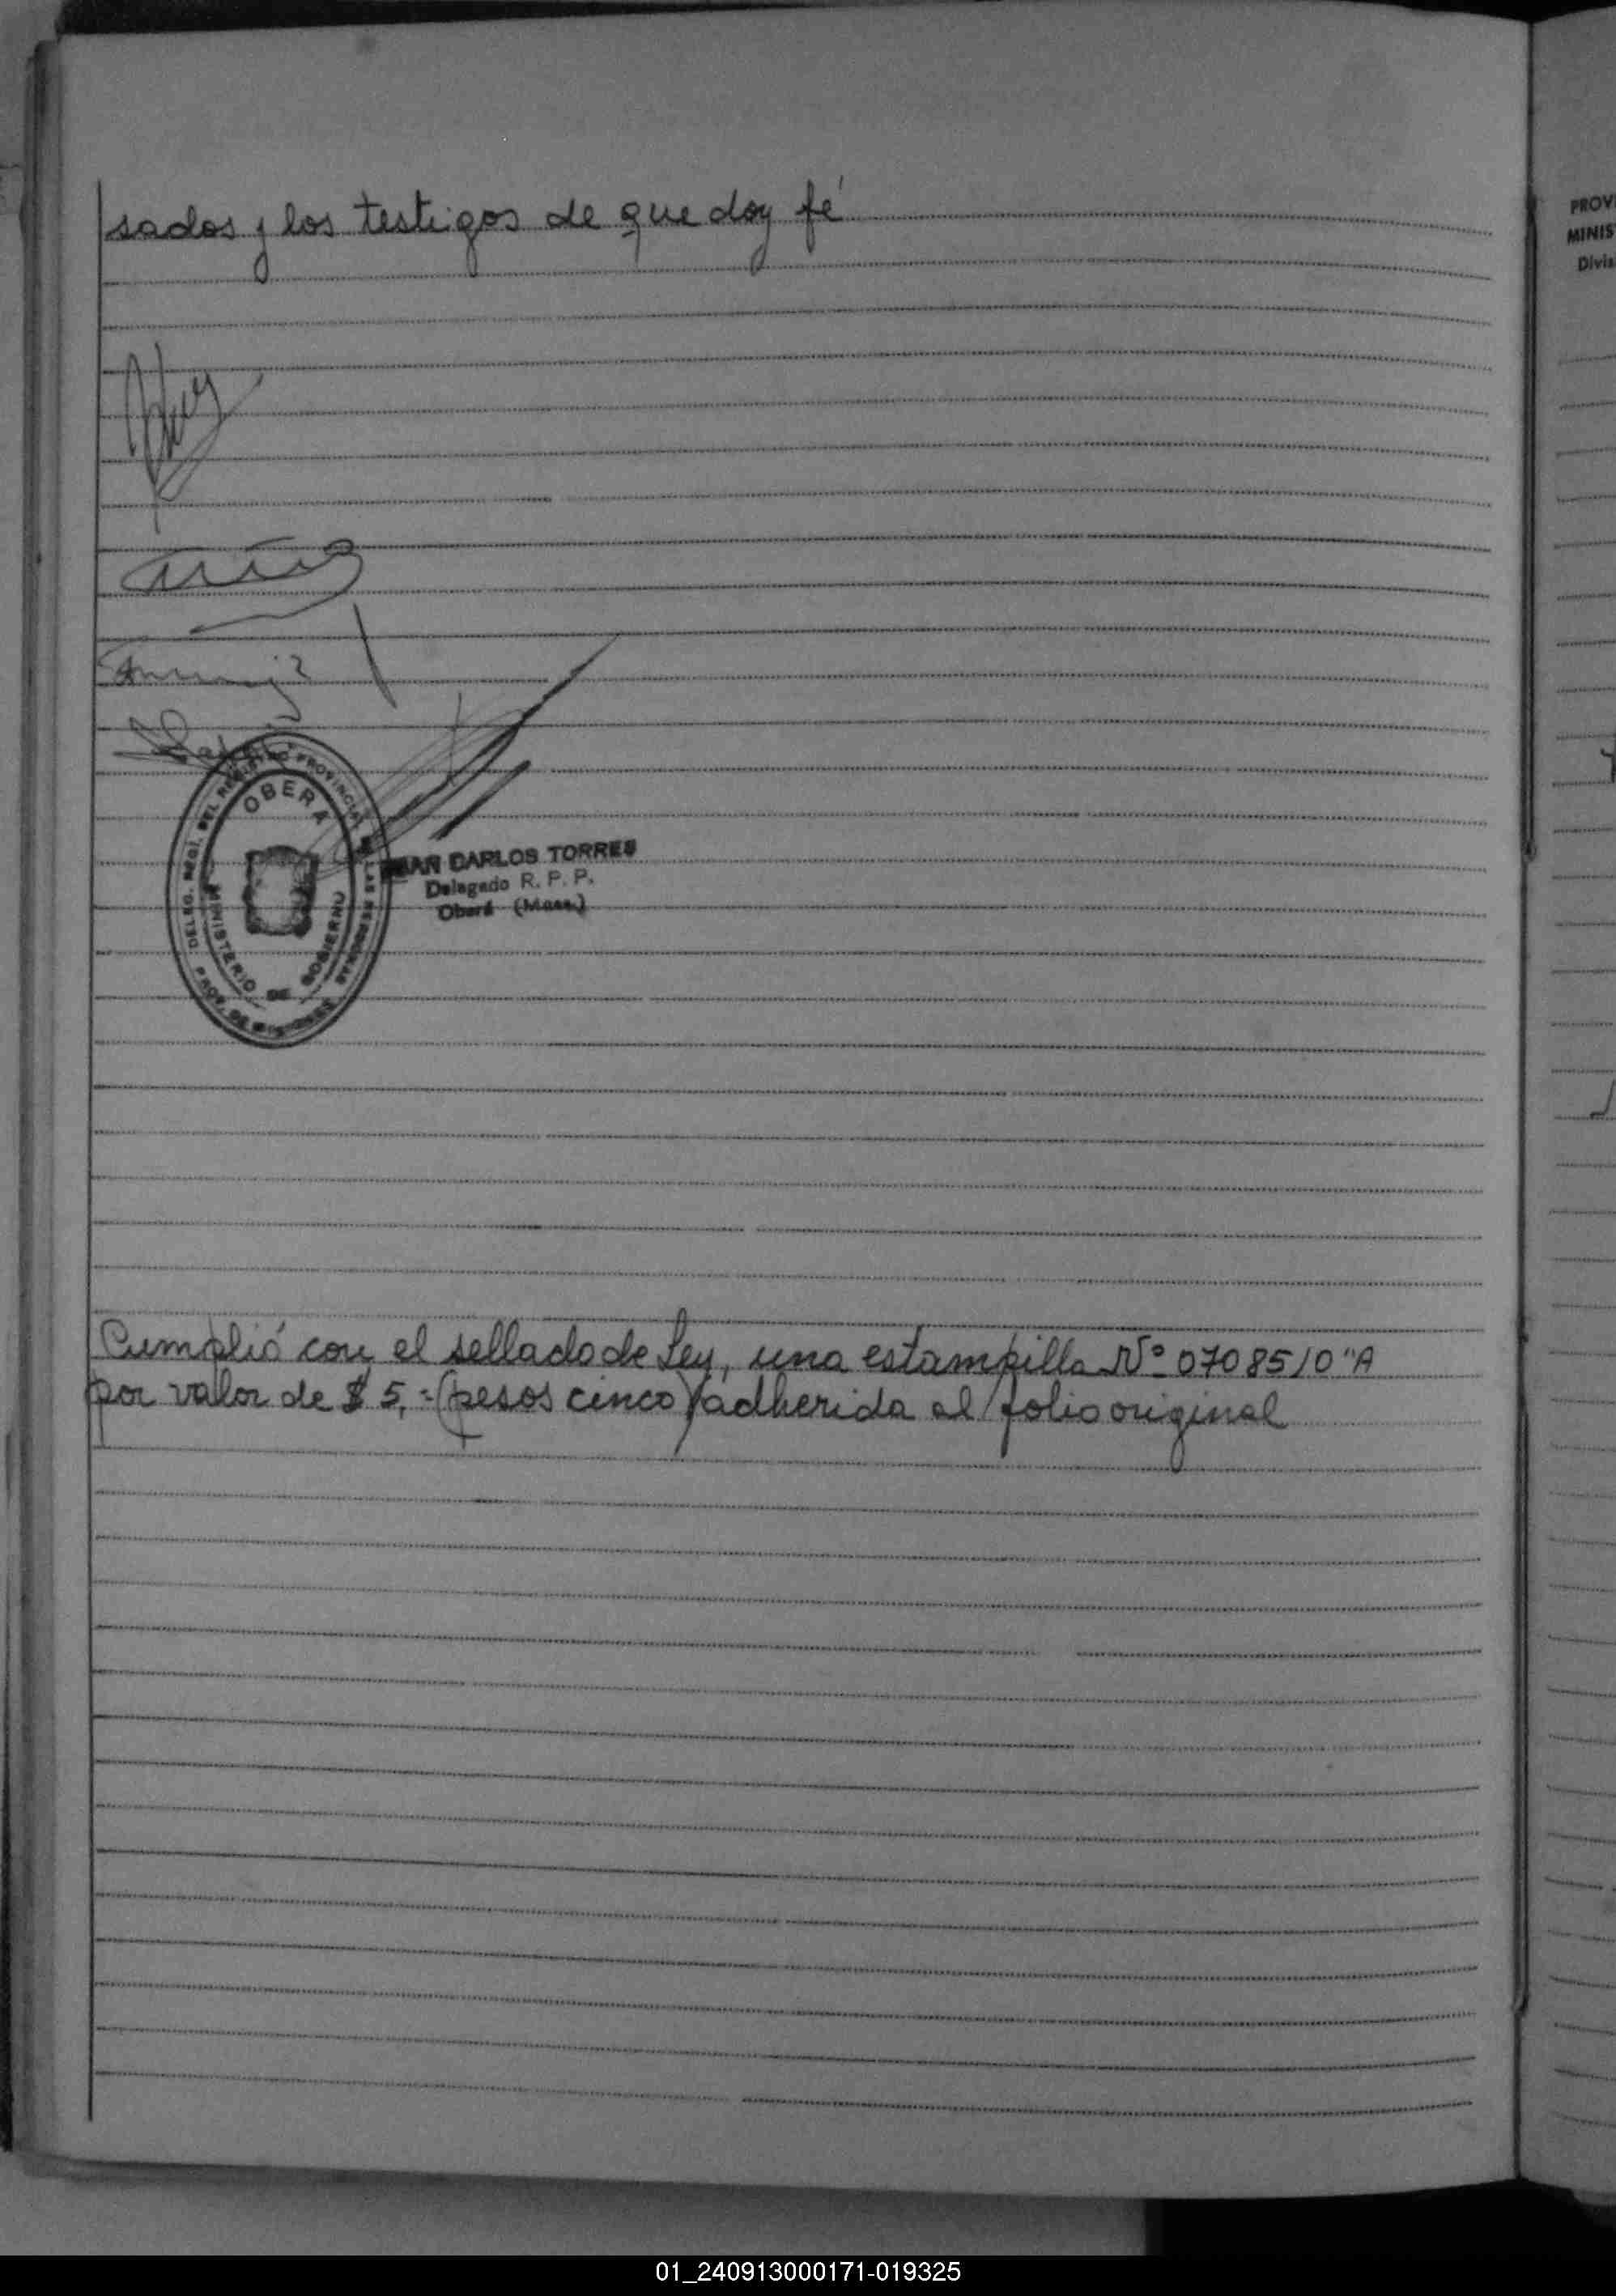 sados y los testigos de que doy fé
OBERA
DELEG. REGI. DEL REGISTRO PROVINCIAL DE LAS PERSONAS
MINISTERIO DE GOBIERNO
PROV. DE MISIONES
JUAN CARLOS TORRES
Delegado R. P. P.
Oberá (Mnes.)
Cumplió con el sellado de Ley, una estampilla Nº 0708510 "A
por valor de $ 5,= (pesos cinco) adherida al folio original
PROV
MINIS
Divis
01_240913000171-019325